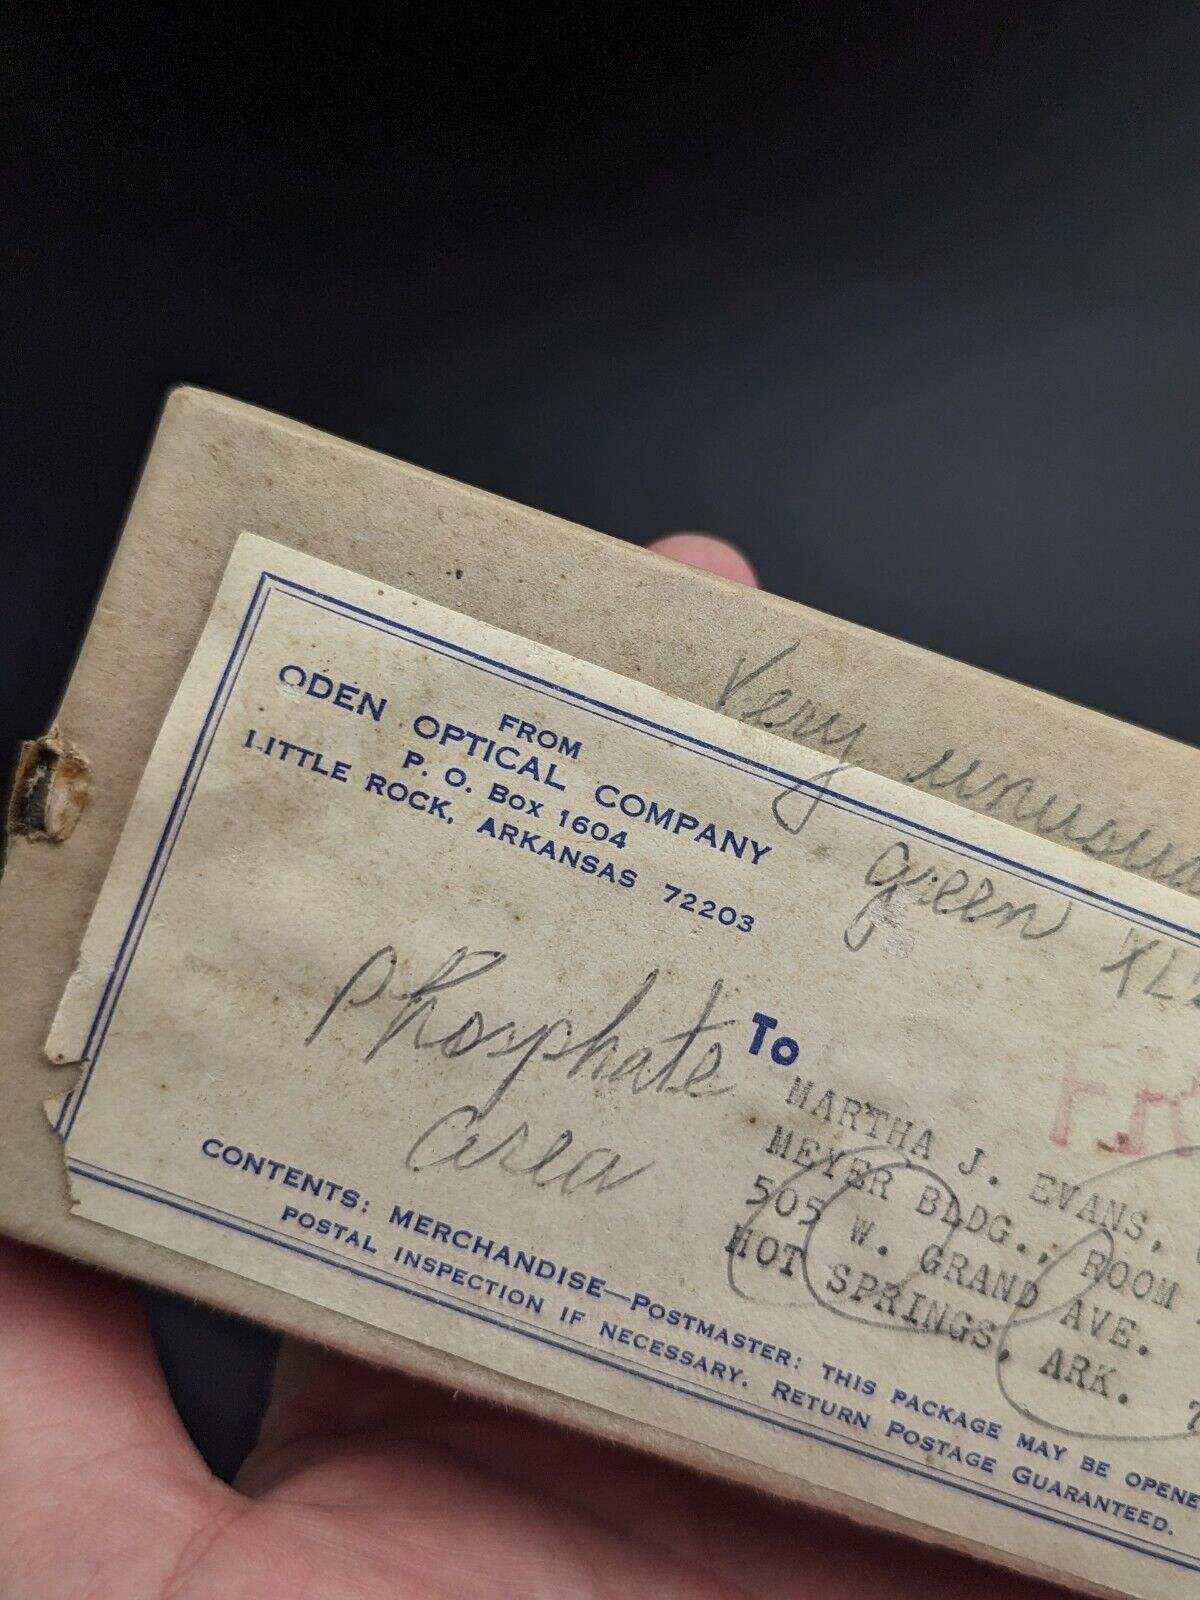 Very unusual
green XLs
FROM
ODEN OPTICAL COMPANY
P. O. BOX 1604
LITTLE ROCK, ARKANSAS 72203
Phosphate
area
TO
MARTHA J. EVANS,
MEYER BLDG., ROOM
505 W. GRAND AVE.
HOT SPRINGS, ARK. 7
CONTENTS: MERCHANDISE—POSTMASTER: THIS PACKAGE MAY BE OPENE
POSTAL INSPECTION IF NECESSARY. RETURN POSTAGE GUARANTEED.